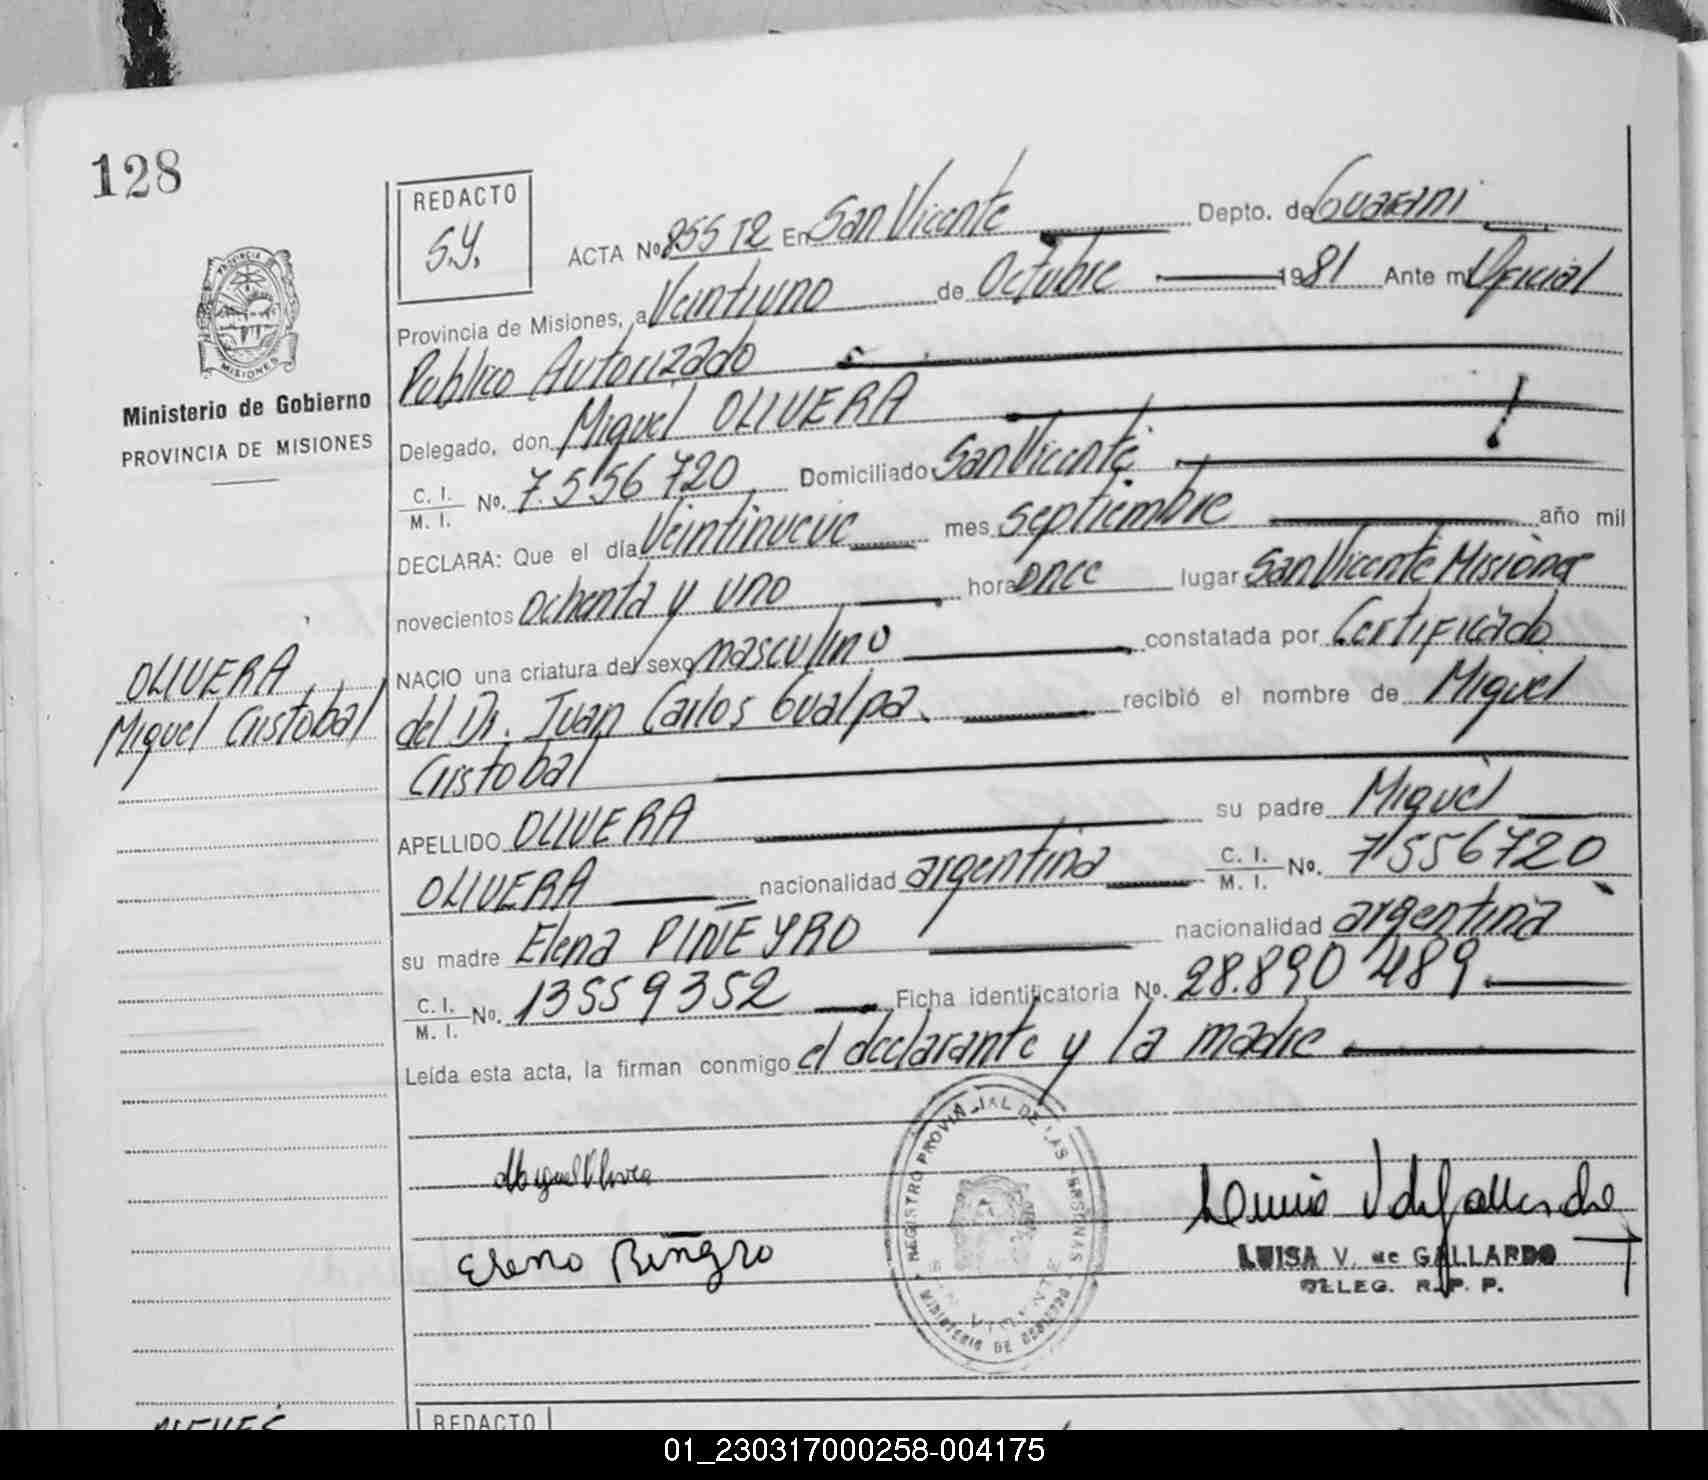 128
REDACTO
S.Y.
ACTA No 855 T2 En San Vicente Depto. de Guarani
Provincia de Misiones, a Veintiuno de Octubre 1981 Ante mi Oficial
Publico Autorizado
Delegado, don Miguel OLIVERA
C. I. / M. I. No. 7.556720 Domiciliado San Vicente
DECLARA: Que el día Veintinueve mes septiembre año mil
novecientos ochenta y uno hora once lugar San Vicente Misiones
NACIO una criatura del sexo masculino constatada por Certificado
del Dr. Juan Carlos Gualpa. recibió el nombre de Miguel
Cristobal
APELLIDO OLIVERA su padre Miguel
OLIVERA nacionalidad argentina C. I. / M. I. No. 7556720
su madre Elena PIÑEYRO nacionalidad argentina
C. I. / M. I. No. 13559352 Ficha identificatoria No. 28.890489
Leída esta acta, la firman conmigo el declarante y la madre
PROVINCIA DE MISIONES
Ministerio de Gobierno
PROVINCIA DE MISIONES
OLIVERA
Miguel Cristobal
Miguel Olivera
Elena Piñeyro
REGISTRO PROVINCIAL DE LAS PERSONAS
MINISTERIO DE GOBIERNO
SAN VICENTE
LUISA V. de GALLARDO
DELEG. R. P. P.
REDACTO
01_230317000258-004175